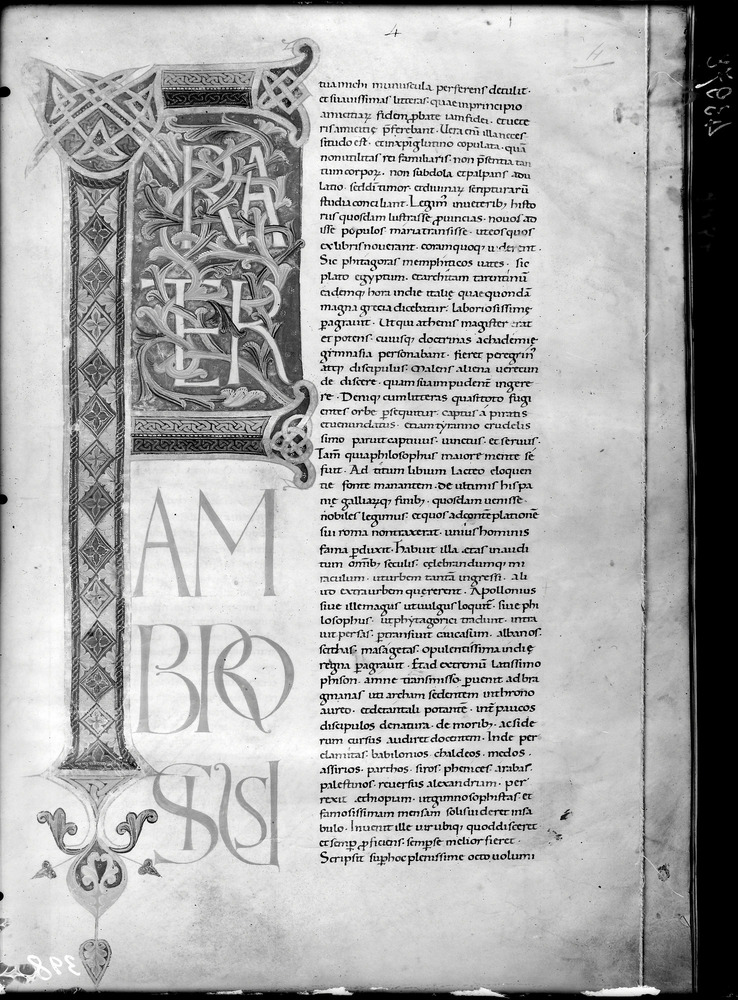 4
FRATER
AM
BRO
SIUS
tua michi munuscula perferens detulit·
et suavissimas litteras· quae in principio
amicitiaꝝ fidem ꝓbate iam fidei· et vete
ris amicitię p̄ferebant· Vera eni illa neces
situdo est· et in xp̄i glutino copulata· quā
non utilitas rei familiaris· non p̄sentia tan
tum corpoꝝ· non subdola et palpans adu
latio· sed dī timor· et divinaꝝ scripturarū
studia conciliant· Legim᾽ in veterib; histo
riis quosdam lustrasse ꝓvincias· novos ad
isse populos maria transisse· ut eos quos
ex libris noverant· coram quoq; viderent·
Sic phitagoras memphiticos vates· sic
plato egyptum· et architam tarentinū
eademq; hora indie italię quae quondā
magna grecia dicebatur· laboriosissimę
ꝑagravit· Ut qui athenis magister erat
et potens· cuiusq; doctrinas achademię
gymnasia personabant· fieret peregrin᾽
atq; discipulus· Malens aliena verecun
de discere· quam sua inpudent̄ ingere
re· Deniq; cum litteras quasi toto fugi
entes orbe ꝑsequitur· captus a piratis
et venundatus· etiam tyranno crudelis
simo paruit captivus· vinctus· et servus·
Tam̄ quia philosophus maiore mente se
fuit· Ad titum livium lacteo eloquen
tie fonte manantem· de ultimis hispa
nię galliaꝝq; finib; quosdam venisse·
nobiles legimus· et quos ad contēplationē
sui roma non traxerat· unius hominis
fama ꝑduxit· Habuit illa etas inaudi
tum omib; seculis· celebrandumq; mi
raculum· ut urbem tantā ingressi· ali
ud extra urbem quererent· Apollonius
sive ille magus ut vulgus loquit᾽· sive phi
losophus· ut phytagorici tradunt· intra
vit persas· ꝑtransiuit caucasum· albanos·
scithas· masagetas· opulentissima indię
regna ꝑagravit· Et ad extremū latissimo
phison· amne transmisso· ꝑvenit ad bra
gmanas uti archam sedentem in throno
aureo· et de tantali potantē· int̄ paucos
discipulos de natura· de morib; ac side
rum cursus audiret docentem· Inde per
elamitas· babilonios· chaldeos· medos·
assirios· parthos· siros· phenices· arabas·
palestinos· reversus alexandriam· per
rexit ethiopiam· ut gimnosophistas· et
famosissimam mensam solis videret in sa
bulo· Invenit ille vir ubiq; quod disceret
et semꝑ ꝓficiens· semꝑ se melior fieret·
Scripsit suꝑ hoc plenissime octo volumi
398